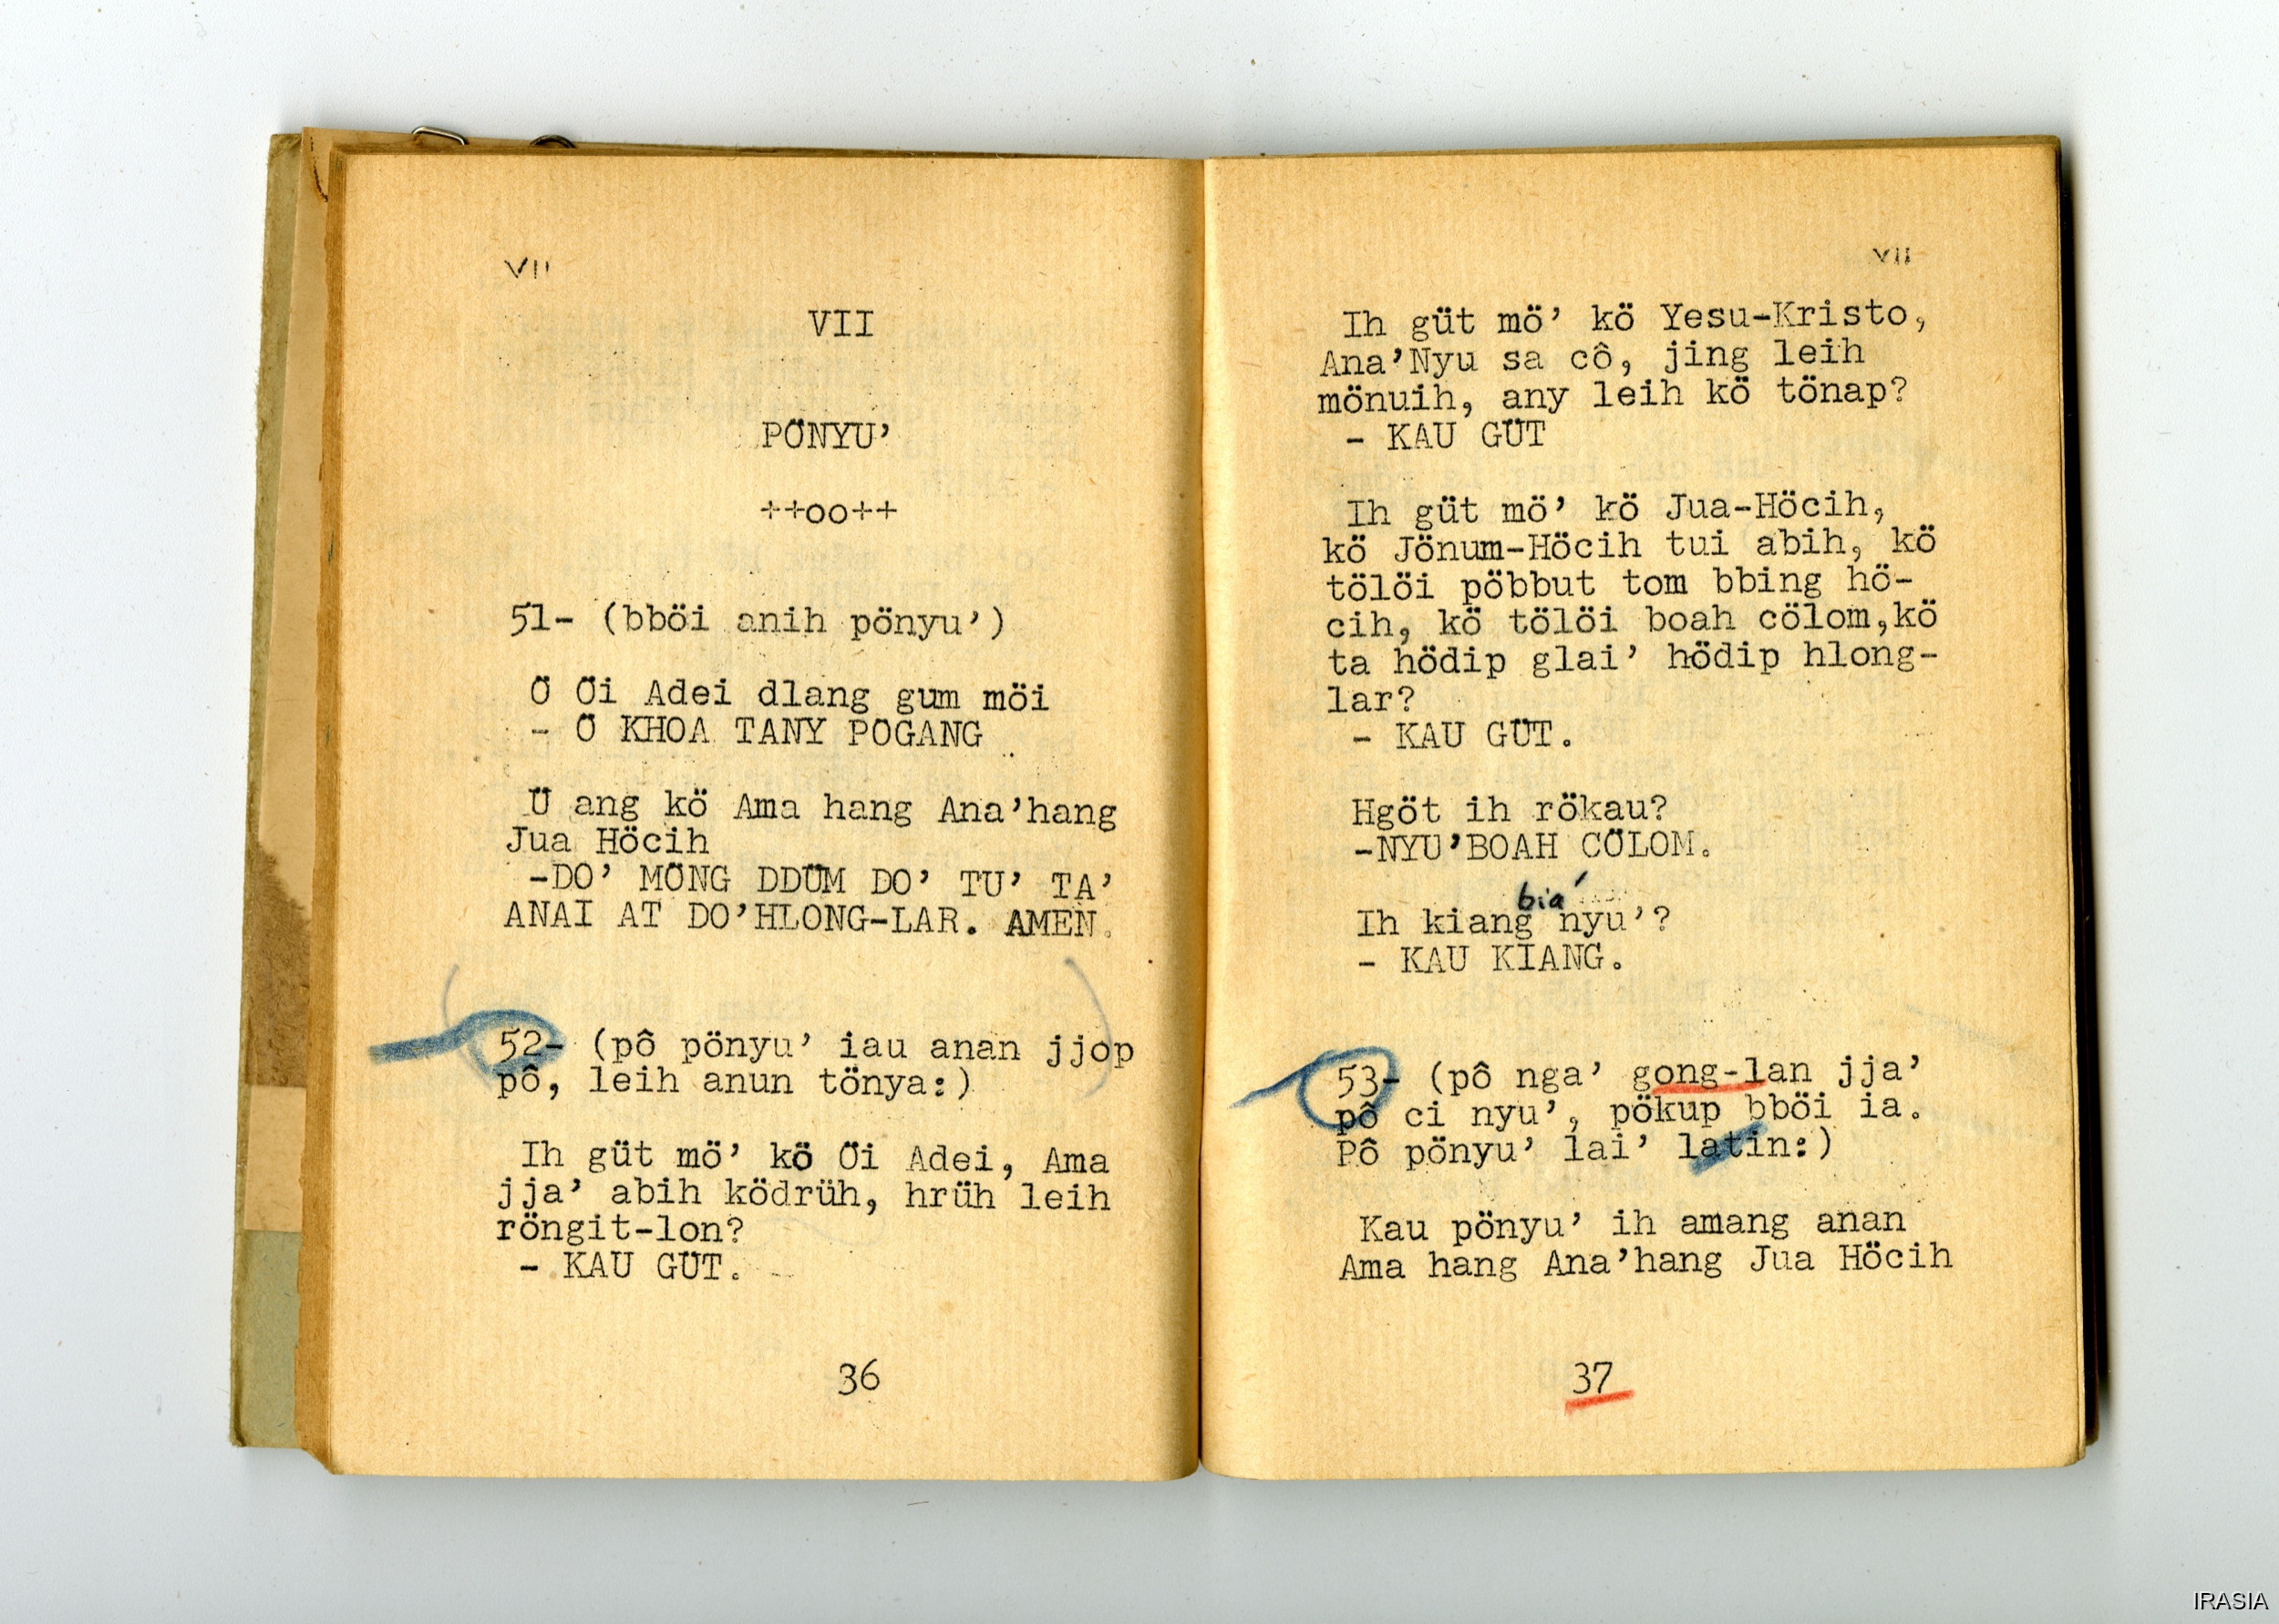 VII
VII
PÖNYU’
++oo++
51- (bböi anih pönyu’)
Ö Öi Adei dlang gum möi
- Ö KHOA TANY PÖGANG
Ü ang kö Ama hang Ana’hang
Jua Höcih
-DO’ MÖNG DDÜM DO’ TU’ TA’
ANAI AT DO’HLONG-LAR. AMEN.
52- (pô pönyu’ iau anan jjop
pô, leih anun tönya:)
Ih güt mö’ kö Öi Adei, Ama
jja’ abih ködrüh, hrüh leih
röngit-lon?
- KAU GÜT.
36
VII
Ih güt mö’ kö Yesu-Kristo,
Ana’Nyu sa cô, jing leih
mönuih, any leih kö tönap?
- KAU GÜT
Ih güt mö’ kö Jua-Höcih,
kö Jönum-Höcih tui abih, kö
tölöi pöbbut tom bbing hö-
cih, kö tölöi boah cölom,kö
ta hödip glai’ hödip hlong-
lar?
- KAU GÜT.
Hgöt ih rökau?
-NYU’BOAH CÖLOM.
bia’
Ih kiang nyu’?
- KAU KIANG.
53- (pô nga’ gong-lan jja’
pô ci nyu’, pökup bböi ia.
Pô pönyu’ lai’ latin:)
Kau pönyu’ ih amang anan
Ama hang Ana’hang Jua Höcih
37
IRASIA